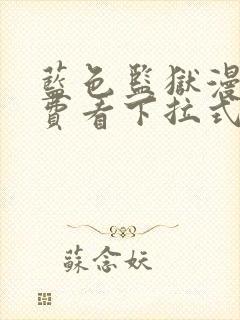 藍色監獄漫
費看下拉式
蘇念妖